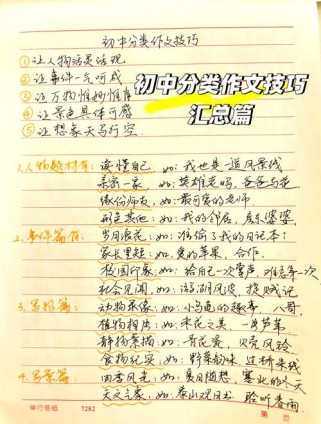 初中分类作文技巧
①让人物活灵活现
②让事件一气呵成
③让万物惟妙惟肖
④让景色具体可感
⑤让想象天马行空
初中分类作文技巧
汇总篇
1.人物题材有：读懂自己，如：我也是一道风景线
亲密一家，如：英雄花妈，爸爸与花
缘份师友，如：最可爱的老师
形色其他：如：我的邻居，房东婆婆
2.事件篇有：岁月浪花：如：谁偷了我的日记本？
家长里短：如：爱的苹果，合作
校园印象，如：给自己一次掌声，难忘
社会见闻：如：游湖风波，
3.写物篇：动物采像：如：小乌龟的趣事，八哥，
植物相片：如：朱花之美，一片芦苇
静物素描：如：青花瓷，火壳风铃
食物纪实：如：野菜韵味，过桥米线
4.写景篇：四季风光，如：夏日随想，塞北的冬天
天文气象，如：泰山观日出，聆听春雨
举行信纸 7282 第 页